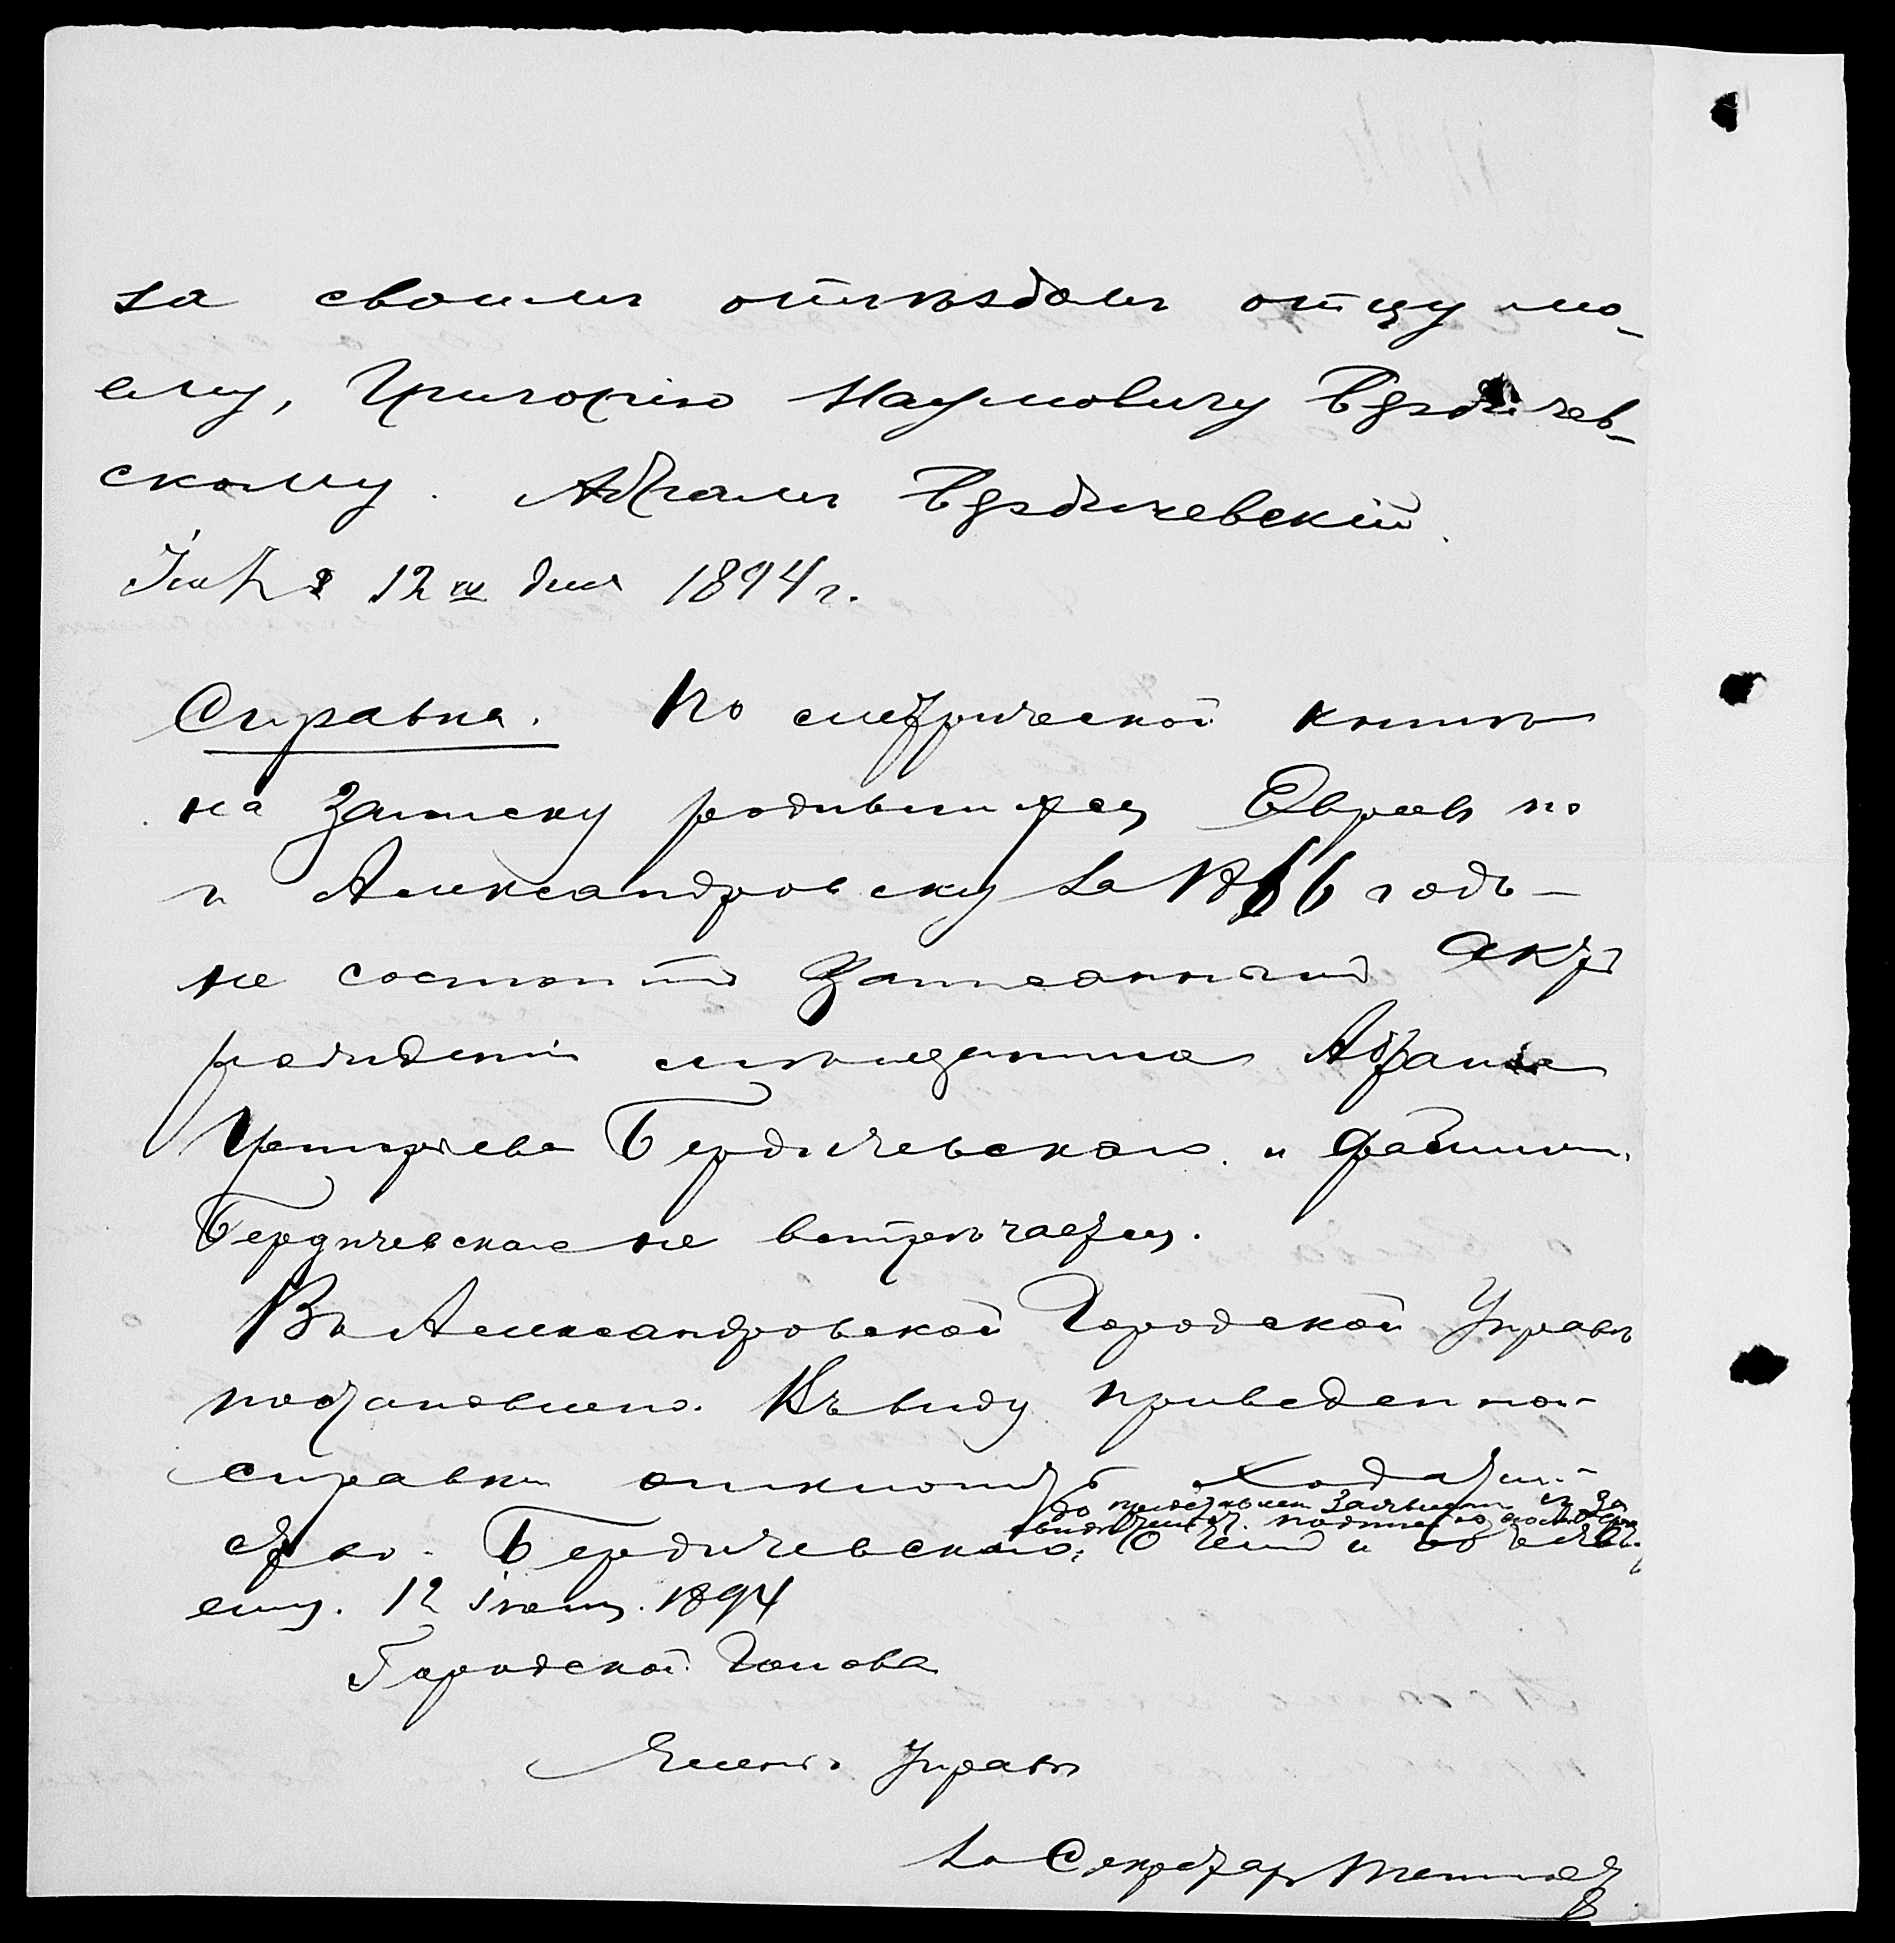 за своимъ отъѣздомъ отцу мо-
ему, Григорію Наумовичу Бердичев-
скому. Абрамъ Бердичевскій.
12го дня 1894 г.
Справка. По метрической книгѣ
на записку родившихся Евреевъ по
г. Александровску за 1866 годъ —
не состоитъ записанный актъ
рожденія мѣщанина Абрама
Григорьева Бердичевскаго и фамилія
Бердичевскаго не встрѣчается.
Въ Александровской Городской Управѣ
постановлено: Въ виду приведенной
справки отклонить ходатай-
до
ство Бердичевскаго; О чемъ и объявить
ему. 12 іюня 1894
Городской Голова
Членъ Управы
За Секретаря